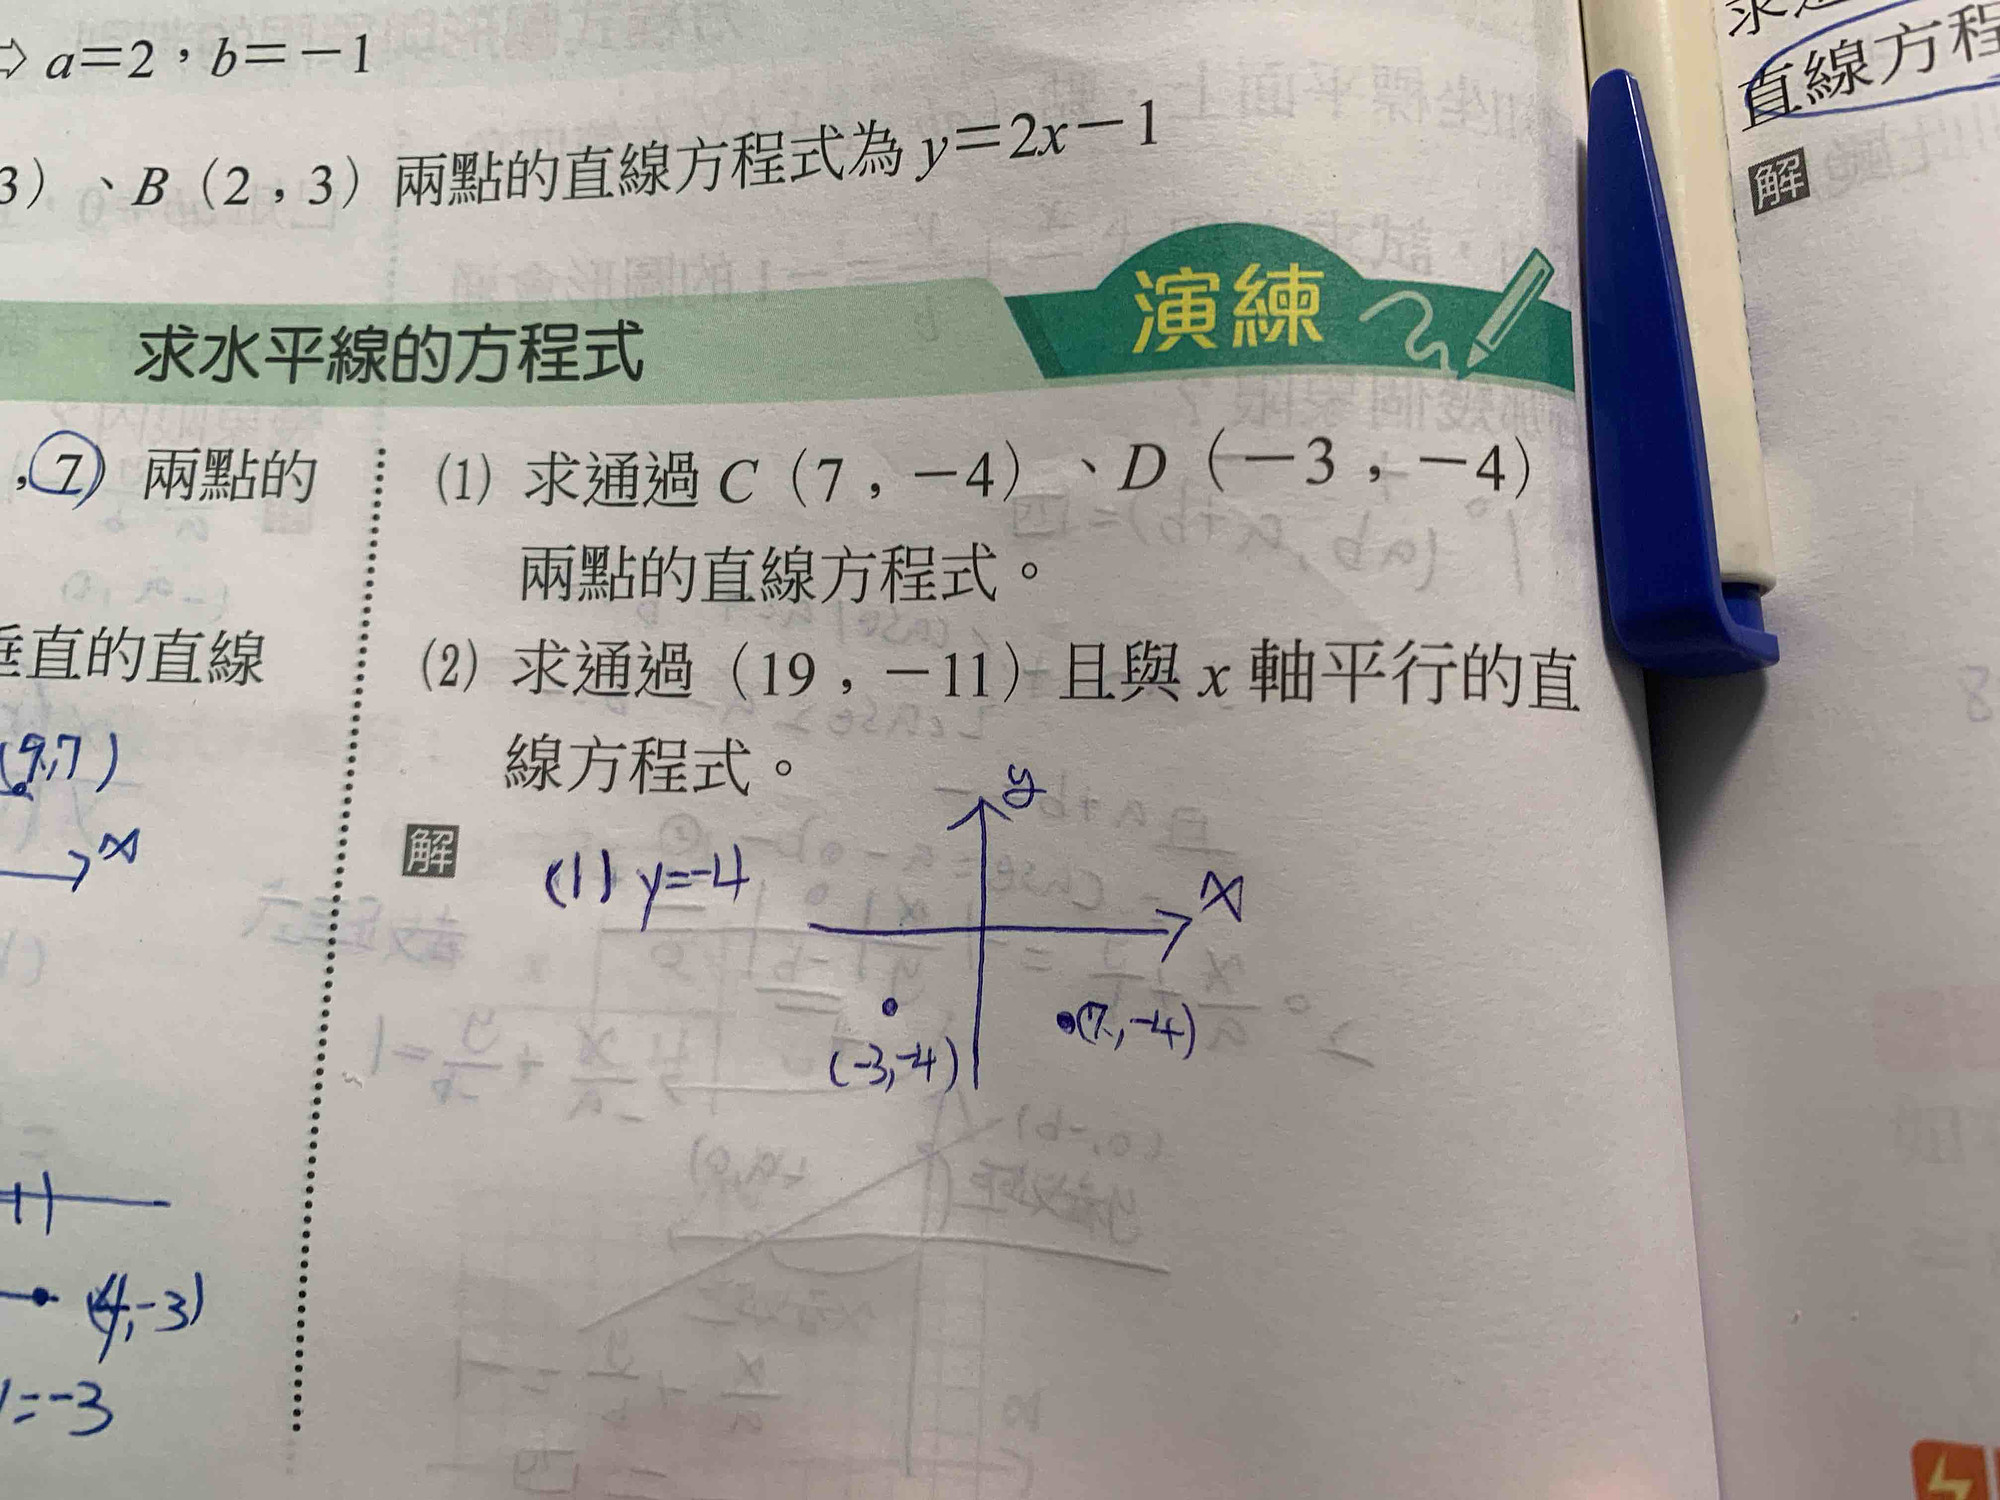 ⇨ a=2，b=−1
3）、B（2，3）兩點的直線方程式為 y=2x−1
求水平線的方程式
演練
，7）兩點的
垂直的直線
(9,7)
x
(4,-3)
=-3
(1) 求通過 C（7，−4）、D（−3，−4）
兩點的直線方程式。
(2) 求通過（19，−11）且與 x 軸平行的直
線方程式。
解
(1) y=-4
y
x
(-3,-4)
(7,-4)
直線方程
解